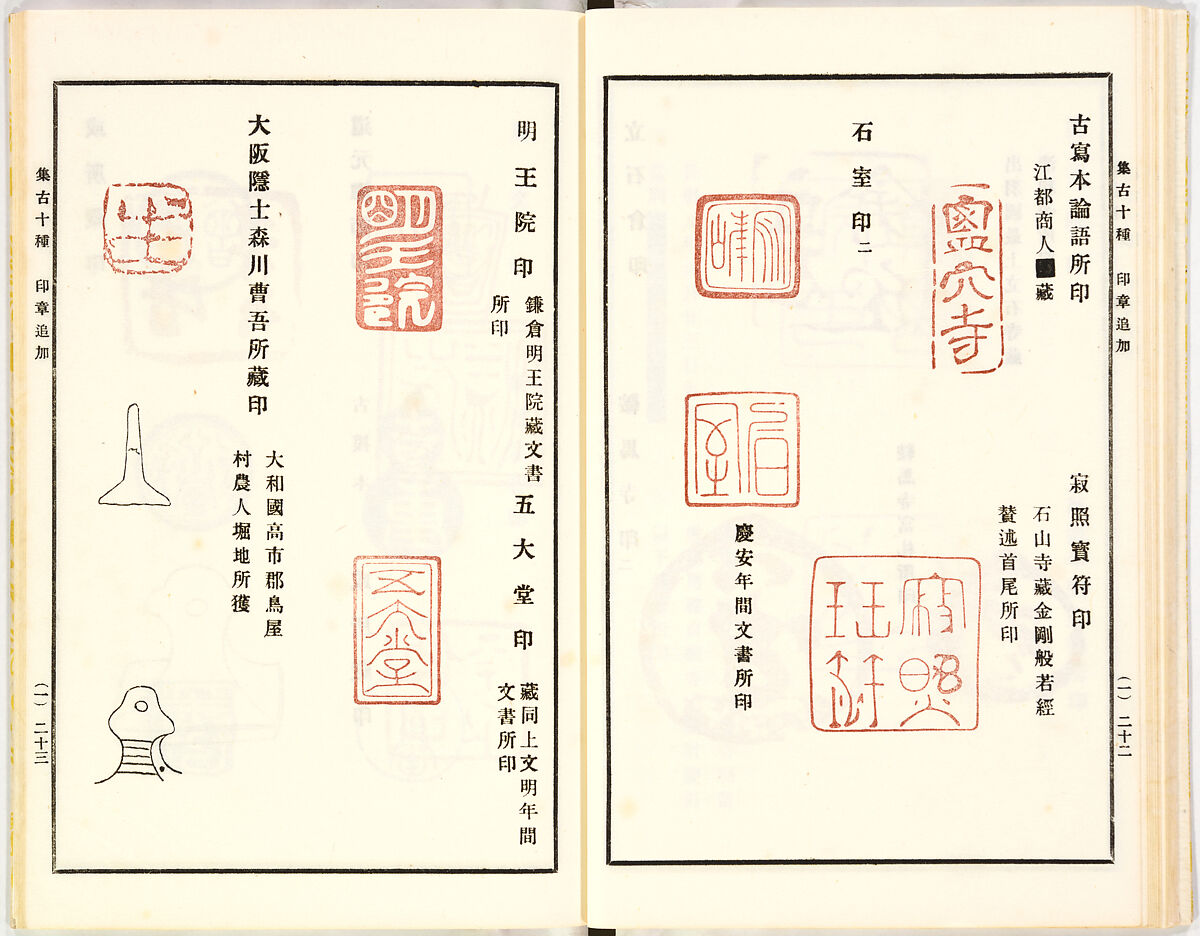 集古十種 印章追加
古寫本論語所印
江都商人
藏
穴寺
寂照寶符印
石山寺藏金剛般若經
賛述首尾所印
石室印二
慶安年間文書所印
(一) 二十二
明王院印
鎌倉明王院藏文書
所印
明王院
五大堂印
藏同上文明年間
文書所印
五大堂
大阪隱士森川曹吾所藏印
大和國高市郡鳥屋
村農人堀地所獲
集古十種 印章追加
(一) 二十三